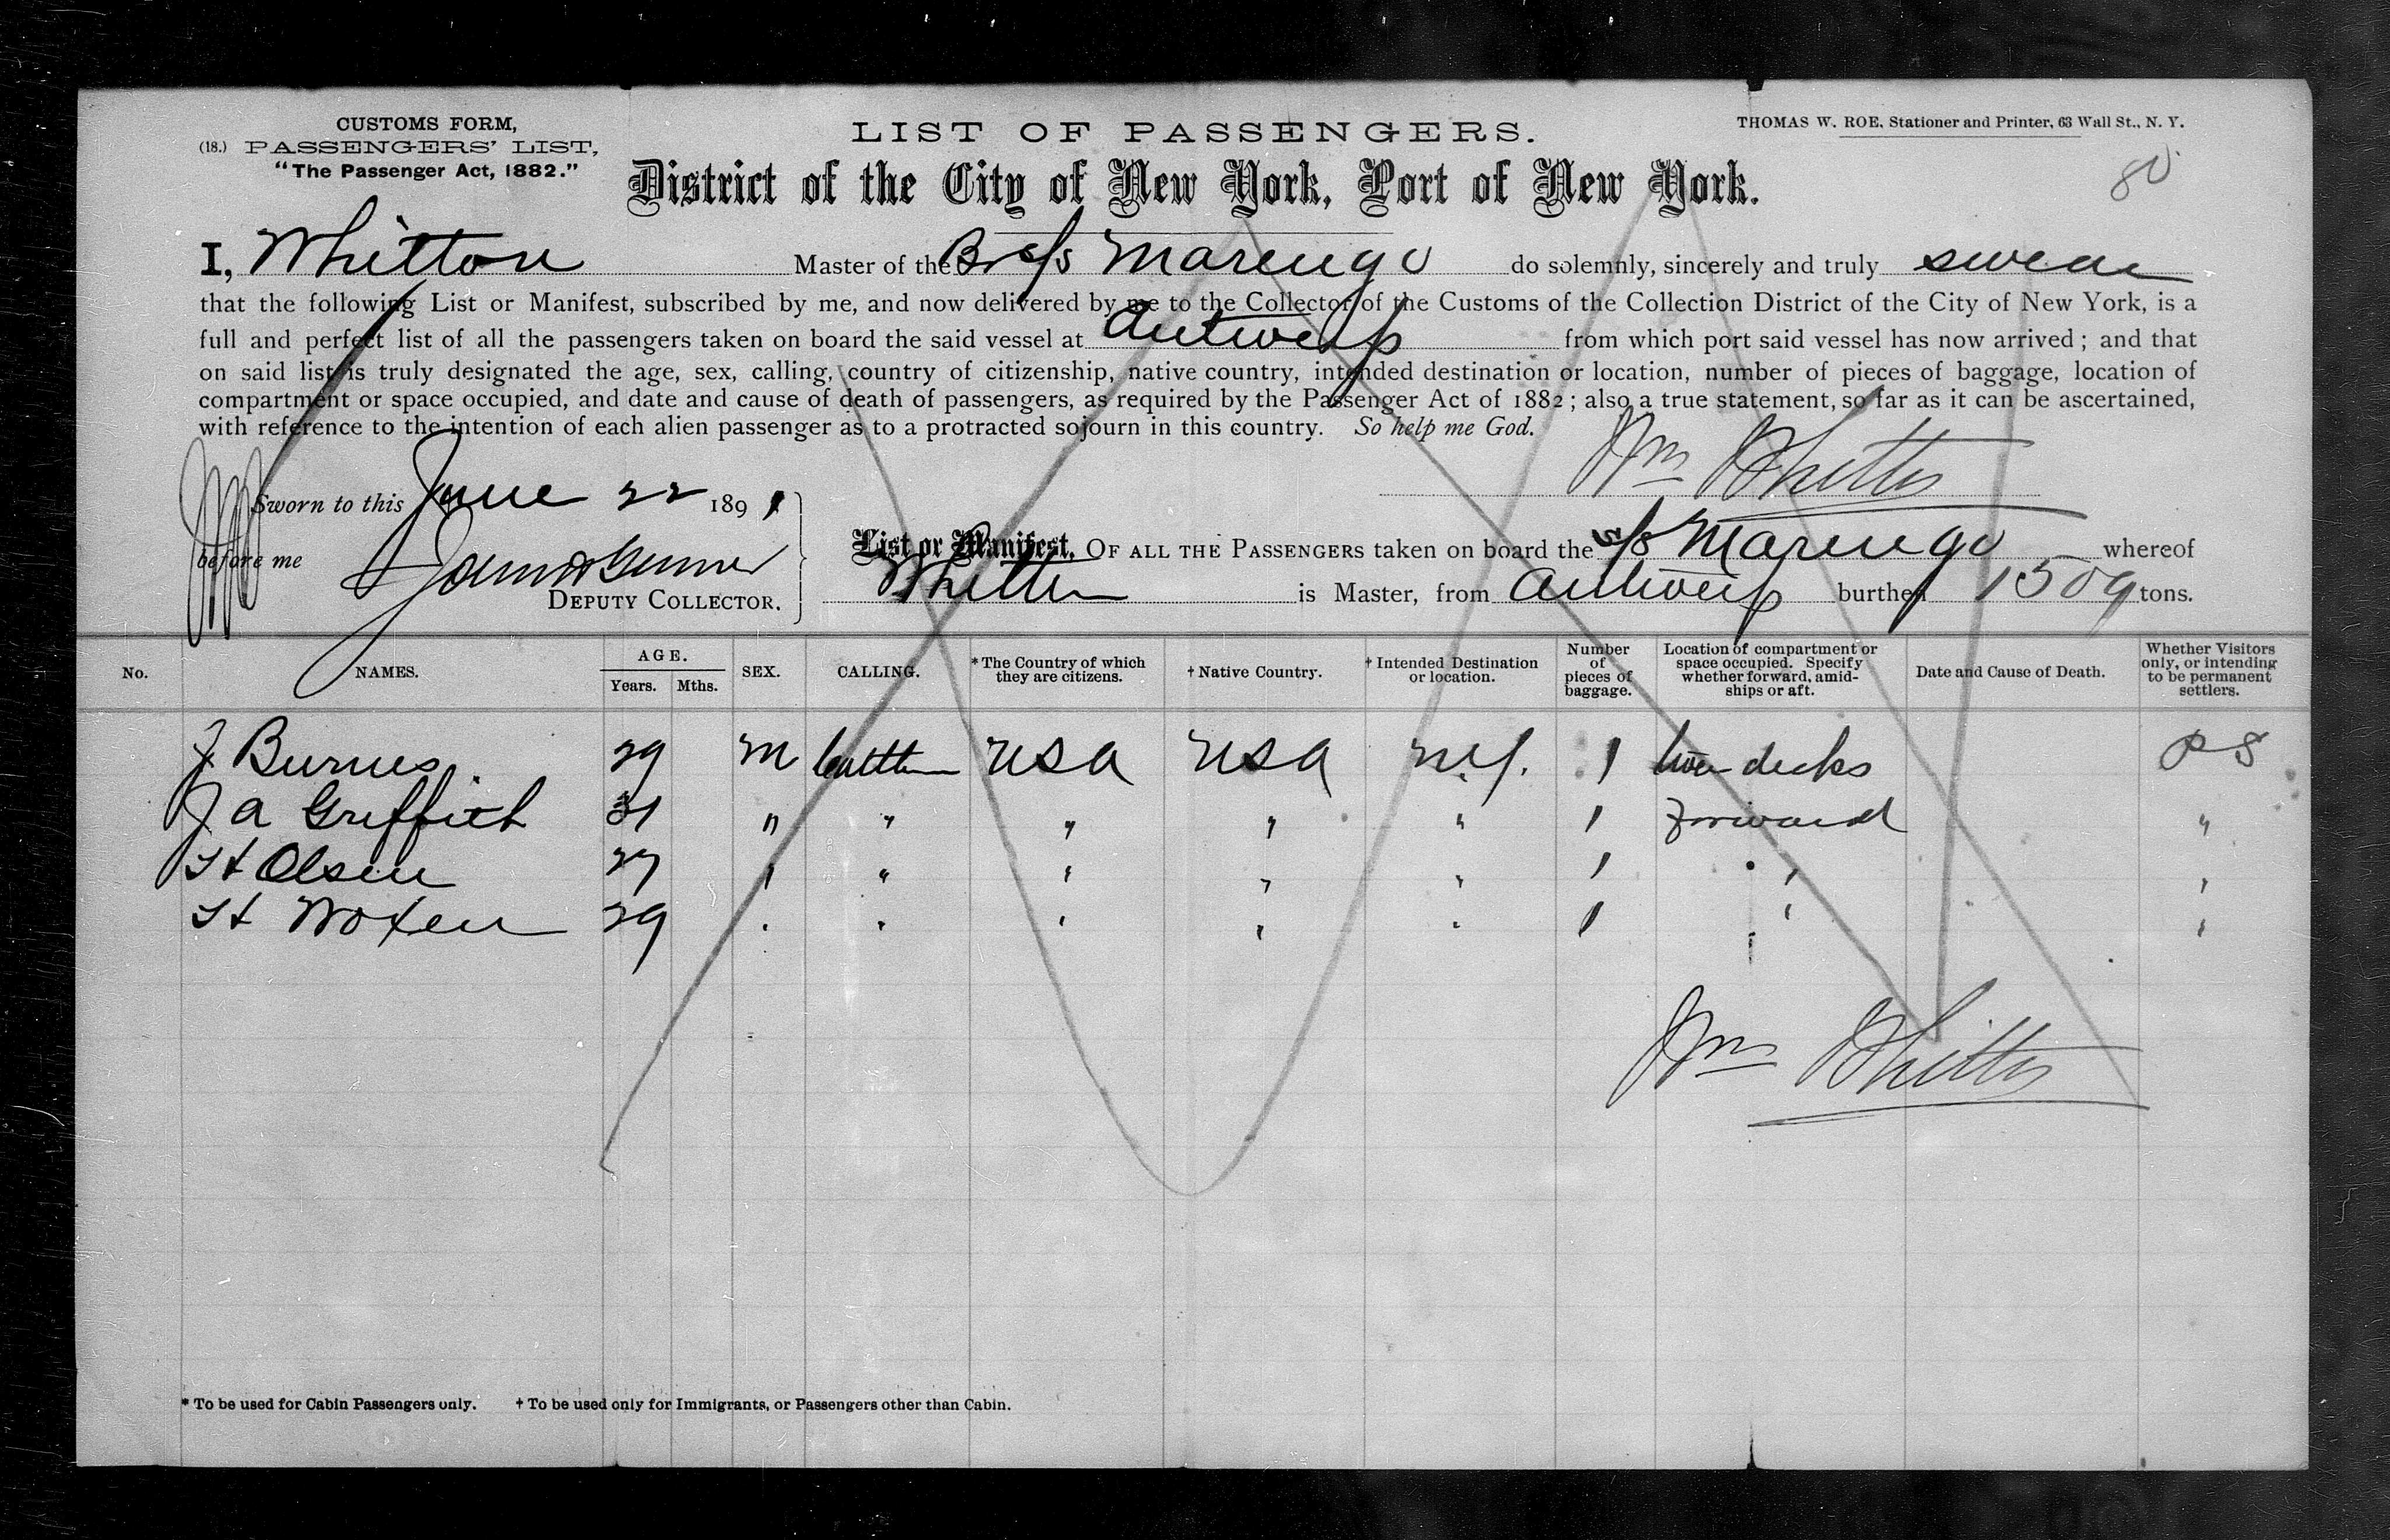 CUSTOMS FORM,
(18.) PASSENGERS' LIST,
"The Passenger Act, 1882."
LIST OF PASSENGERS.
THOMAS W. ROE, Stationer and Printer, 63 Wall St., N. Y.
District of the City of New York, Port of New York.
80
I, Whitton Master of the Br s/s Marengo do solemnly, sincerely and truly swear
that the following List or Manifest, subscribed by me, and now delivered by me to the Collector of the Customs of the Collection District of the City of New York, is a
full and perfect list of all the passengers taken on board the said vessel at Antwerp from which port said vessel has now arrived ; and that
on said list is truly designated the age, sex, calling, country of citizenship, native country, intended destination or location, number of pieces of baggage, location of
compartment or space occupied, and date and cause of death of passengers, as required by the Passenger Act of 1882 ; also a true statement, so far as it can be ascertained,
with reference to the intention of each alien passenger as to a protracted sojourn in this country. So help me God.
Wm Whitton
Sworn to this June 22 1891
before me
DEPUTY COLLECTOR.
List or Manifest, OF ALL THE PASSENGERS taken on board the s/s Marengo whereof
Whitton is Master, from Antwerp burthen 1509 tons.
No. NAMES. AGE. Years. Mths. SEX. CALLING. * The Country of which they are citizens. † Native Country. † Intended Destination or location. Number of pieces of baggage. Location of compartment or space occupied. Specify whether forward, amidships or aft. Date and Cause of Death. Whether Visitors only, or intending to be permanent settlers.
J Burns 29 M USA USA N.Y. 1 decks PS
J A Griffith 31 " " " " " 1 Forward "
Olsen 27 " " " " " 1 " "
29 " " " " " 1 " "
Wm Whitton
* To be used for Cabin Passengers only. † To be used only for Immigrants, or Passengers other than Cabin.